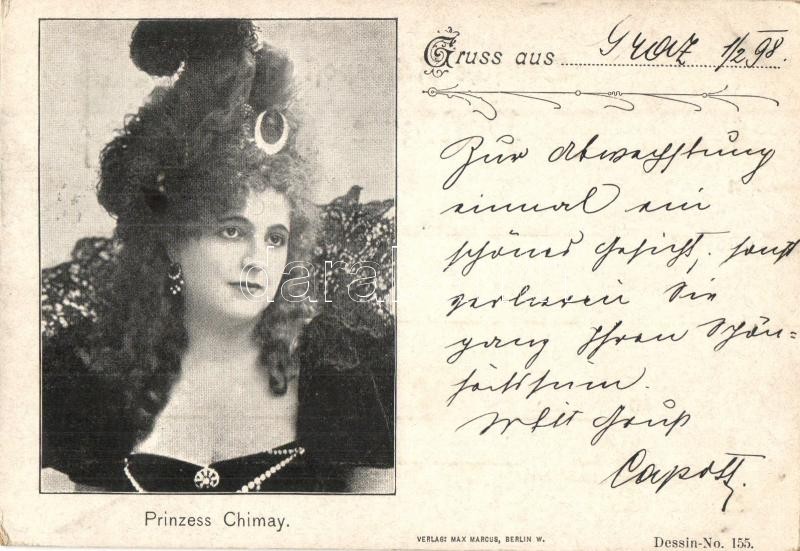 Gruss aus Graz 1/2 98.
Zur Abwechslung
einmal ein
schönes Gesicht, sonst
verlieren Sie
ganz Ihren Schön-
heitssinn.
Mit Gruß
darab
Prinzess Chimay.
VERLAG: MAX MARCUS, BERLIN W.
Dessin-No. 155.